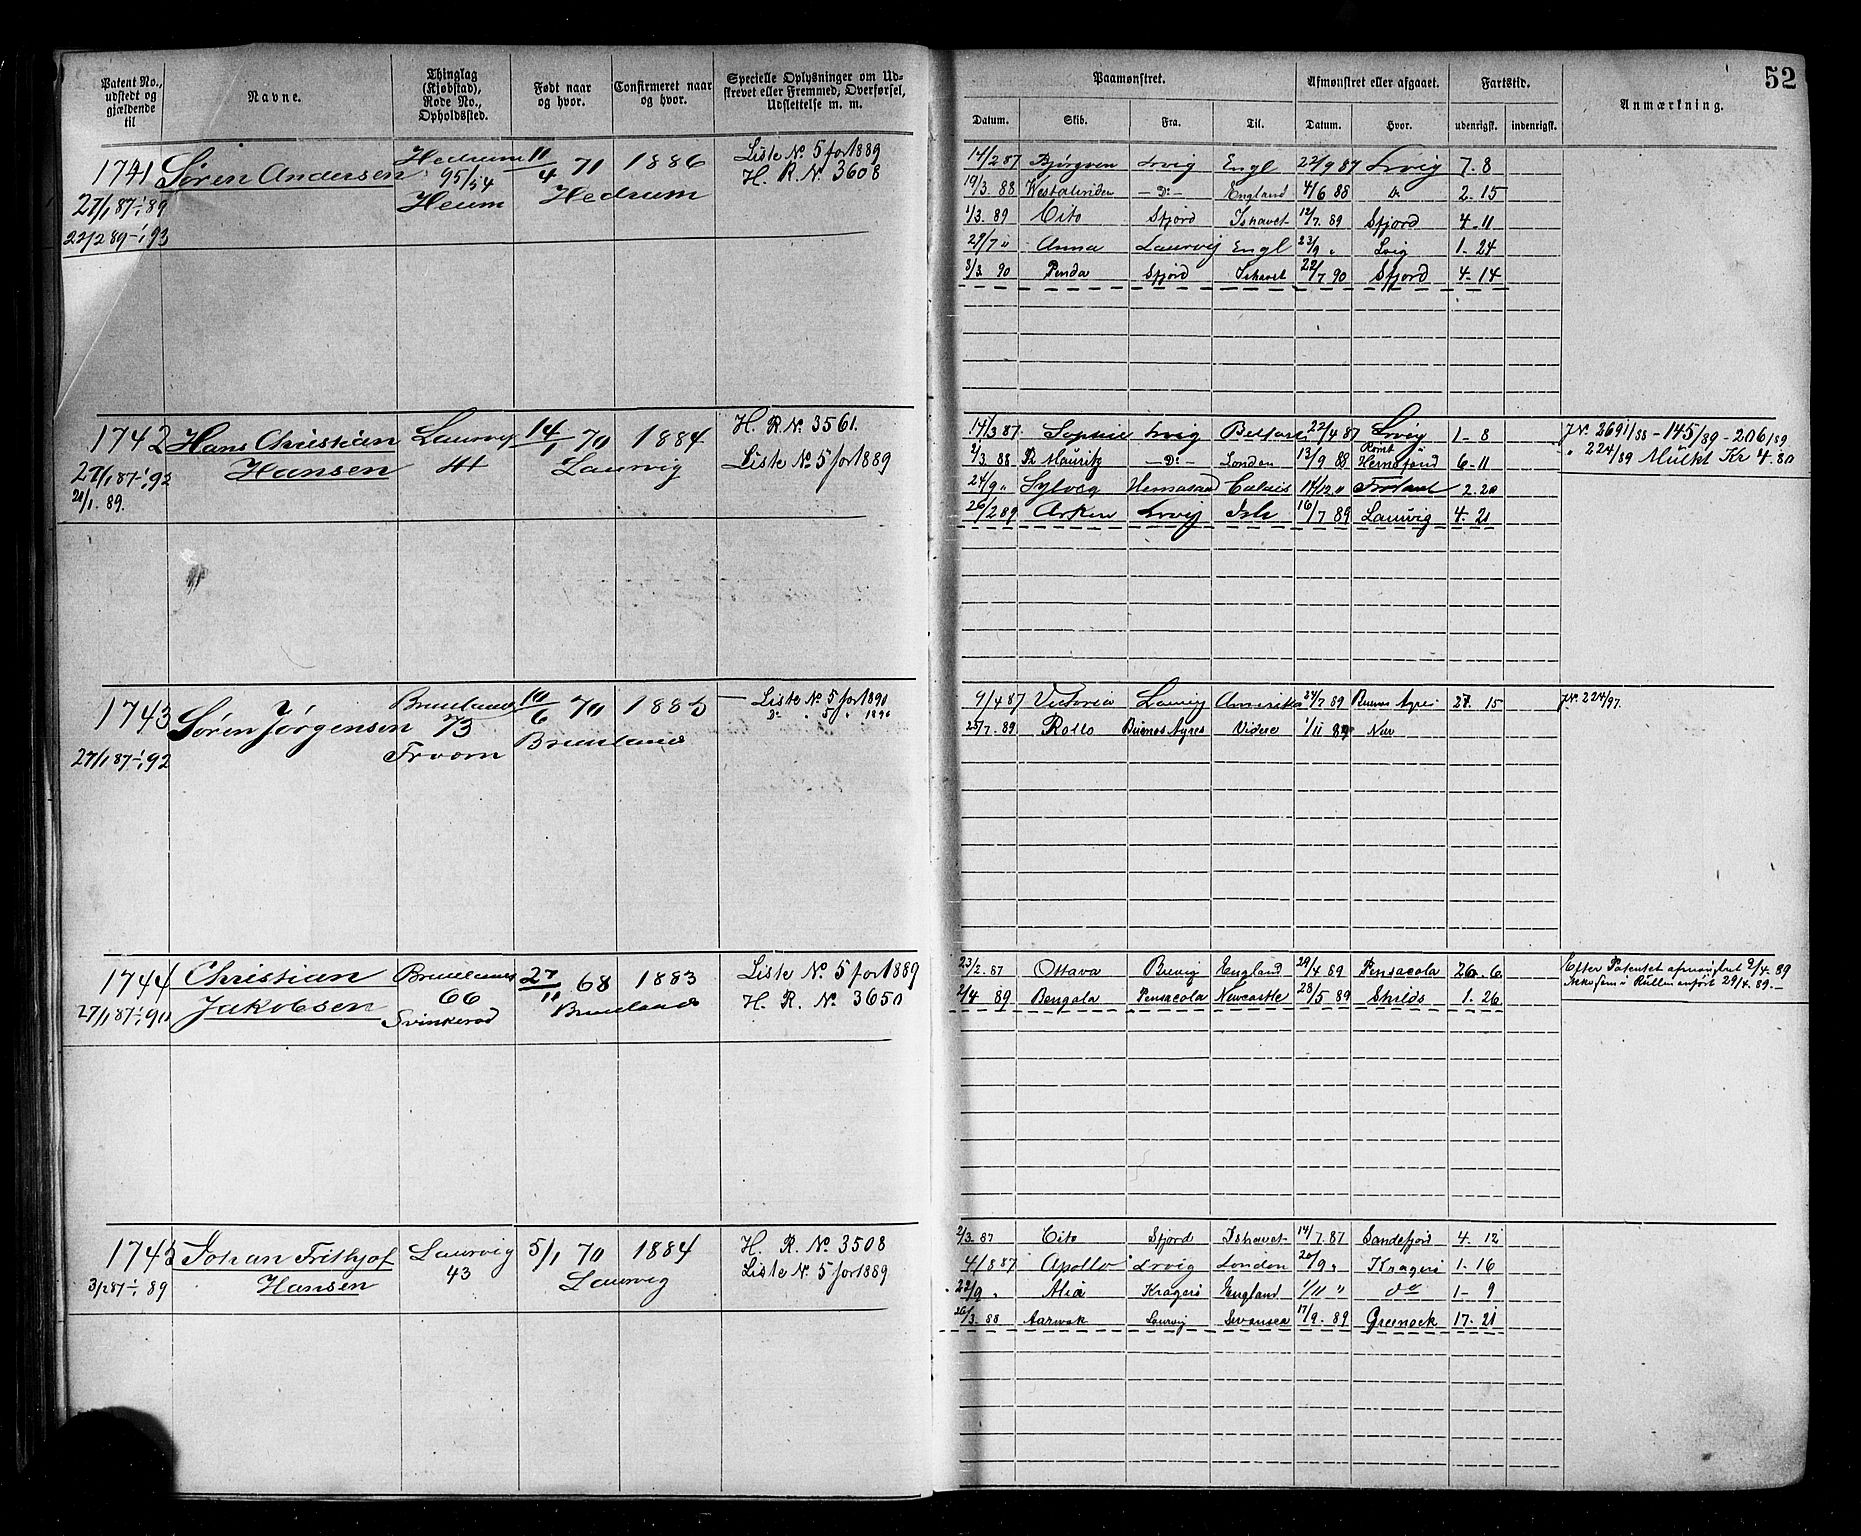 Patent No., udstedt og gjældende til
Navne.
Thinglag (Kjøbstad), Rode No., Opholdssted.
Født naar og hvor.
Confirmeret naar og hvor.
Specielle Oplysninger om Udskrevet eller Fremmed, Overførsel, Udslettelse m. m.
Paamønstret.
Afmønstret eller afgaaet.
Fartstid.
Anmærkning.
52
Datum. Skib. Fra. Til. Datum. Hvor. udenrigst. indenrigst.
1741 Søren Andersen Hedrum 11/4 71 1886 Liste No 5 for 1889
27/1 87-1/1 89 95/54 Hedrum H. R. No 3608
22/2 89-1/1 93 Heum
14/2 87 Bjørgven Lrvig Engl 22/9 87 Lrvig 7. 8
19/3. 88 -Do- England 4/6 88 2. 15
1/3. 89 Cito Sfjord Ishavet 12/7. 89 Sfjord 4. 11
29/7 " Anna Laurvig Engl 23/9 " Lvig 1. 24
3/3 90 Penda Sfjord Ishavet 22/7 90 Sfjord 4. 14
1742 Hans Christian Laurvig 14/1 70 1884 H. R. No. 3561.
Hansen 44 Laurvig Liste No 5 for 1889
27/1 87-1/1 92
21/1. 89.
14/3 87 Sophie Lrvig Belfast 22/4 87 Lrvig 1. 8
2/3. 88 Mauritz -Do- London 13/9 88 Rømt Hernøsand 6. 11
24/9 " Sylveg Hernøsand Calais 14/12 " 2. 20
26/2 89 Arken Lrvig Ish 16/7 89 Laurvig 4. 21
J.N. 2691/88 - 145/89 - 206/89
" 224/89 Mulkt Kr 4.80
1743 Søren Jørgensen Brunlanes 10/6 70 1885 Liste No 5 for 1890
Do " 5 " 1896
27/1 87-1/1 92 73 Brunlanes
Froom
9/4 87 Victoria Laurvig Amerika 24/7 89 Buenos Ayres 27. 15
25/7. 89 Rollo Buenos Ayres Videre 1/11 89
J.N. 224/97.
1744 Christian Brunlanes 27/11 68 1883 Liste No 5 for 1889
Jakobsen 66 Brunlanes H. R. No 3650
27/1 87-1/1 90 Svinkerød
23/2. 87 Ottava Brevig England 29/4 89 Pensacola 26. 6
2/4 89 Bengala Pensacola Newcastle 28/5 89 Shilds 1. 26
Efter Patentet afmønstret 2/4. 89
Rullen anført 29/4. 89.
1745 Johan Frithjof Laurvig 5/1 70 1884 H. R. No 3508
Hansen 43 Laurvig Liste No 5 for 1889
3/2 87-1/1 89
2/3. 87 Cito Sfjord Ishavet 14/7. 87 Sandefjord 4. 12
4/8 87 Apollo Lrvig London 20/9 " Kragerø 1. 16
22/9 " Alia Kragerø England 1/11 " do 1- 9
26/3. 88 Aarvak Laurvig Swansea 17/9. 89 Greenock 17. 21